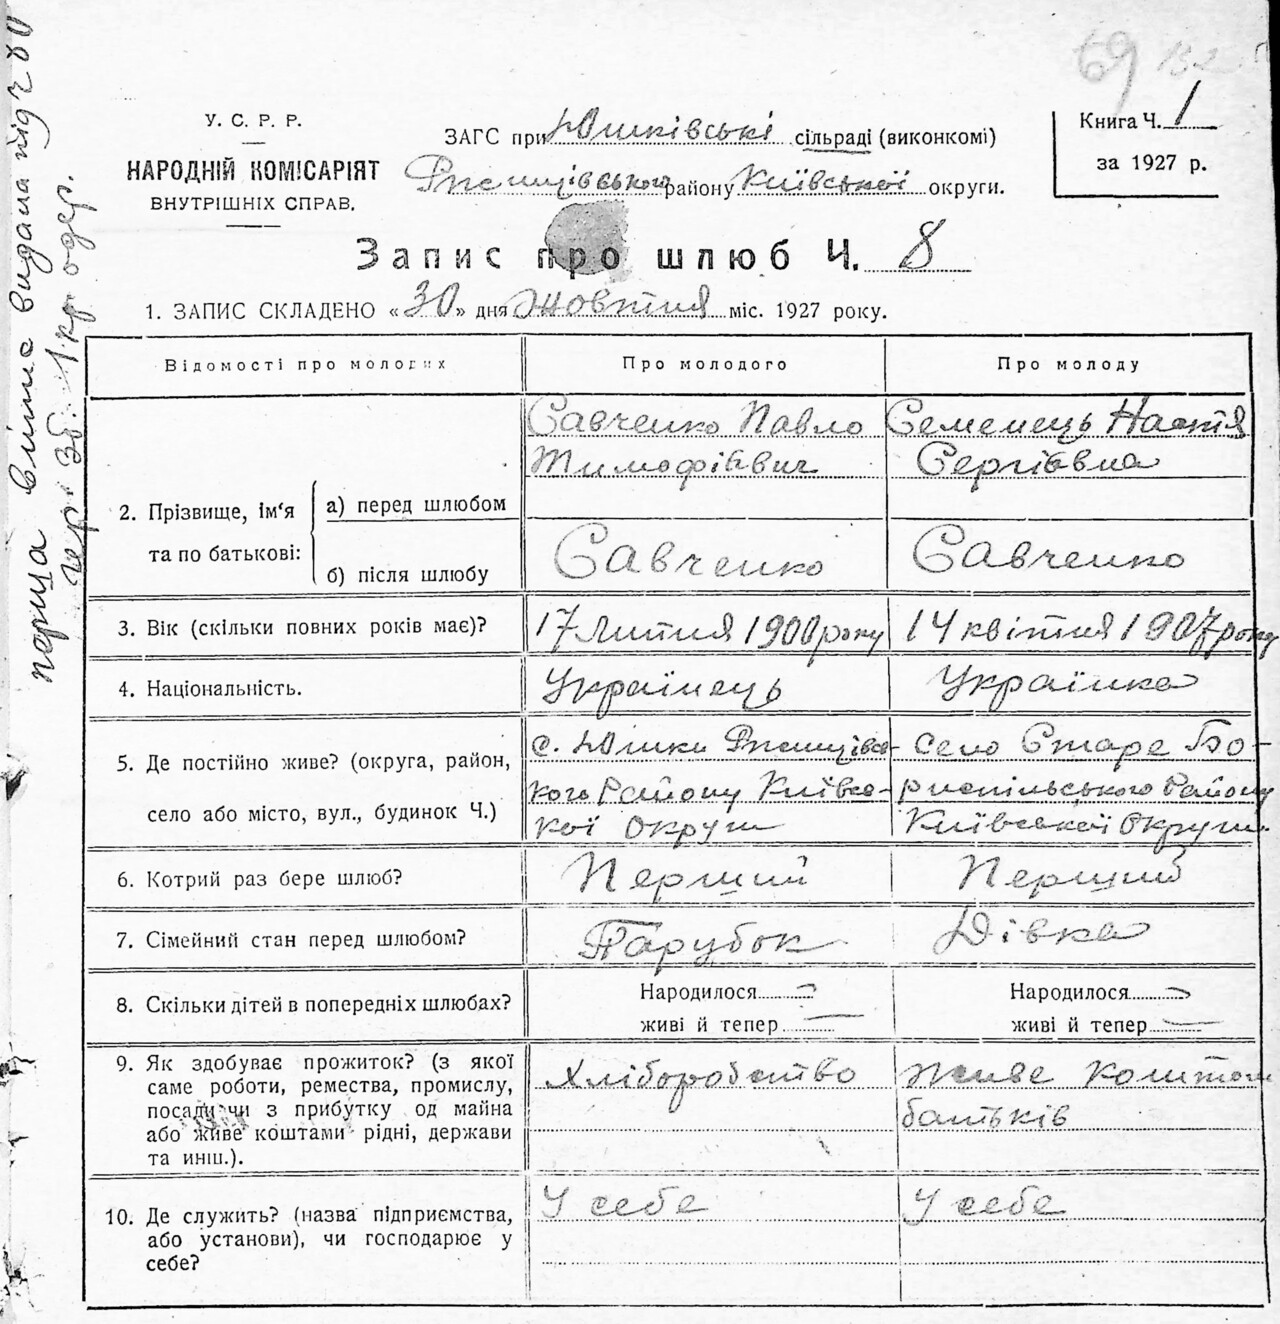 69 152
У. С. Р. Р.
НАРОДНІЙ КОМІСАРІЯТ
ВНУТРІШНІХ СПРАВ.
ЗАГС при Юшківські сільраді (виконкомі)
Ржищівського району Київської округи.
Книга Ч. 1
за 1927 р.
Запис про шлюб Ч. 8
1. ЗАПИС СКЛАДЕНО «30» дня Жовтня міс. 1927 року.
Відомості про молодих
Про молодого
Про молоду
2. Прізвище, ім'я
та по батькові:
а) перед шлюбом
Савченко Павло
Тимофіввич
Семенець Настя
Сергіввна
б) після шлюбу
Савченко
Савченко
3. Вік (скільки повних років має)?
17 Липня 1900 року
14 квітня 1907 року
4. Національність.
Українець
Українка
5. Де постійно живе? (округа, район,
село або місто, вул., будинок Ч.)
с. Юшки Ржищівсь-
кого Району Київсь-
кої Округи
Село Старе Бо-
риспільського Району
Київської Округи.
6. Котрий раз бере шлюб?
Перший
Перший
7. Сімейний стан перед шлюбом?
Парубок
Дівка
8. Скільки дітей в попередніх шлюбах?
Народилося —
живі й тепер —
Народилося —
живі й тепер —
9. Як здобуває прожиток? (з якої
саме роботи, ремества, промислу,
посади чи з прибутку од майна
або живе коштами рідні, держави
та инш.).
Хліборобство
Живе коштом
батьків
10. Де служить? (назва підприємства,
або установи), чи господарює у
себе?
У себе
У себе
видана під ч